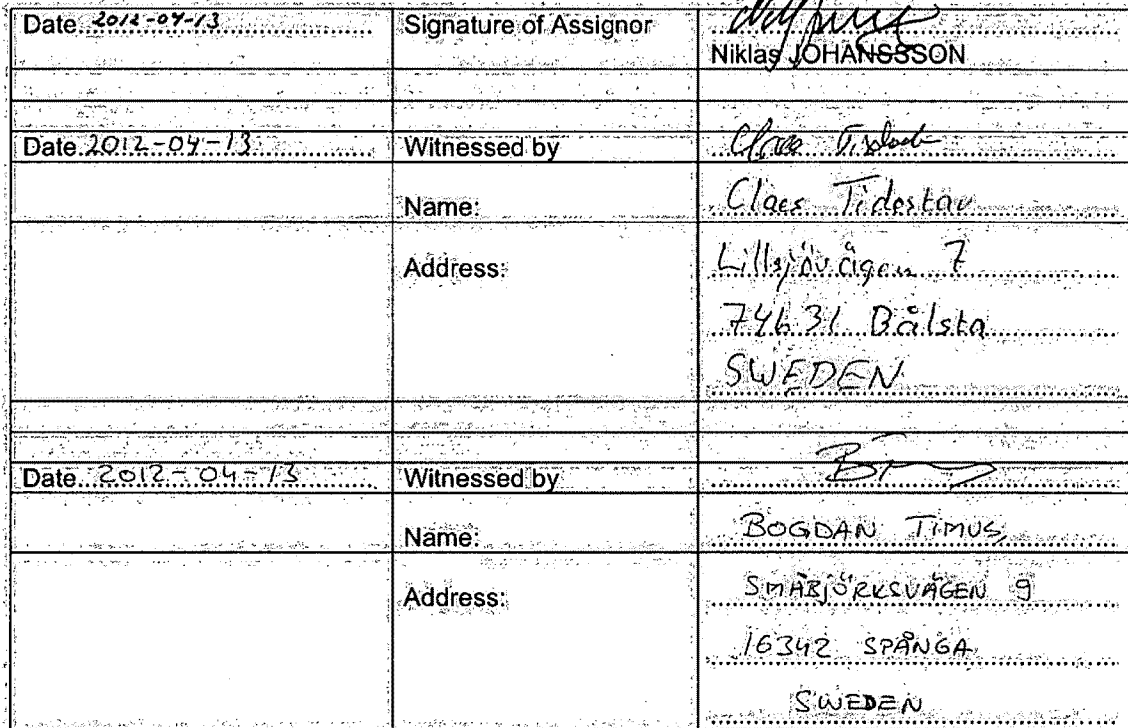 Date 2012-04-13 Signature of Assignor
Niklas JOHANSSSON
Date 2012-04-13 Witnessed by
Name: Claes Tidestav
Address: Lillsjövägen 7
74631 Bålsta
SWEDEN
Date 2012-04-13 Witnessed by
Name: BOGDAN TIMUS
Address: SMÅBJÖRKSVÄGEN 9
16342 SPÅNGA
SWEDEN